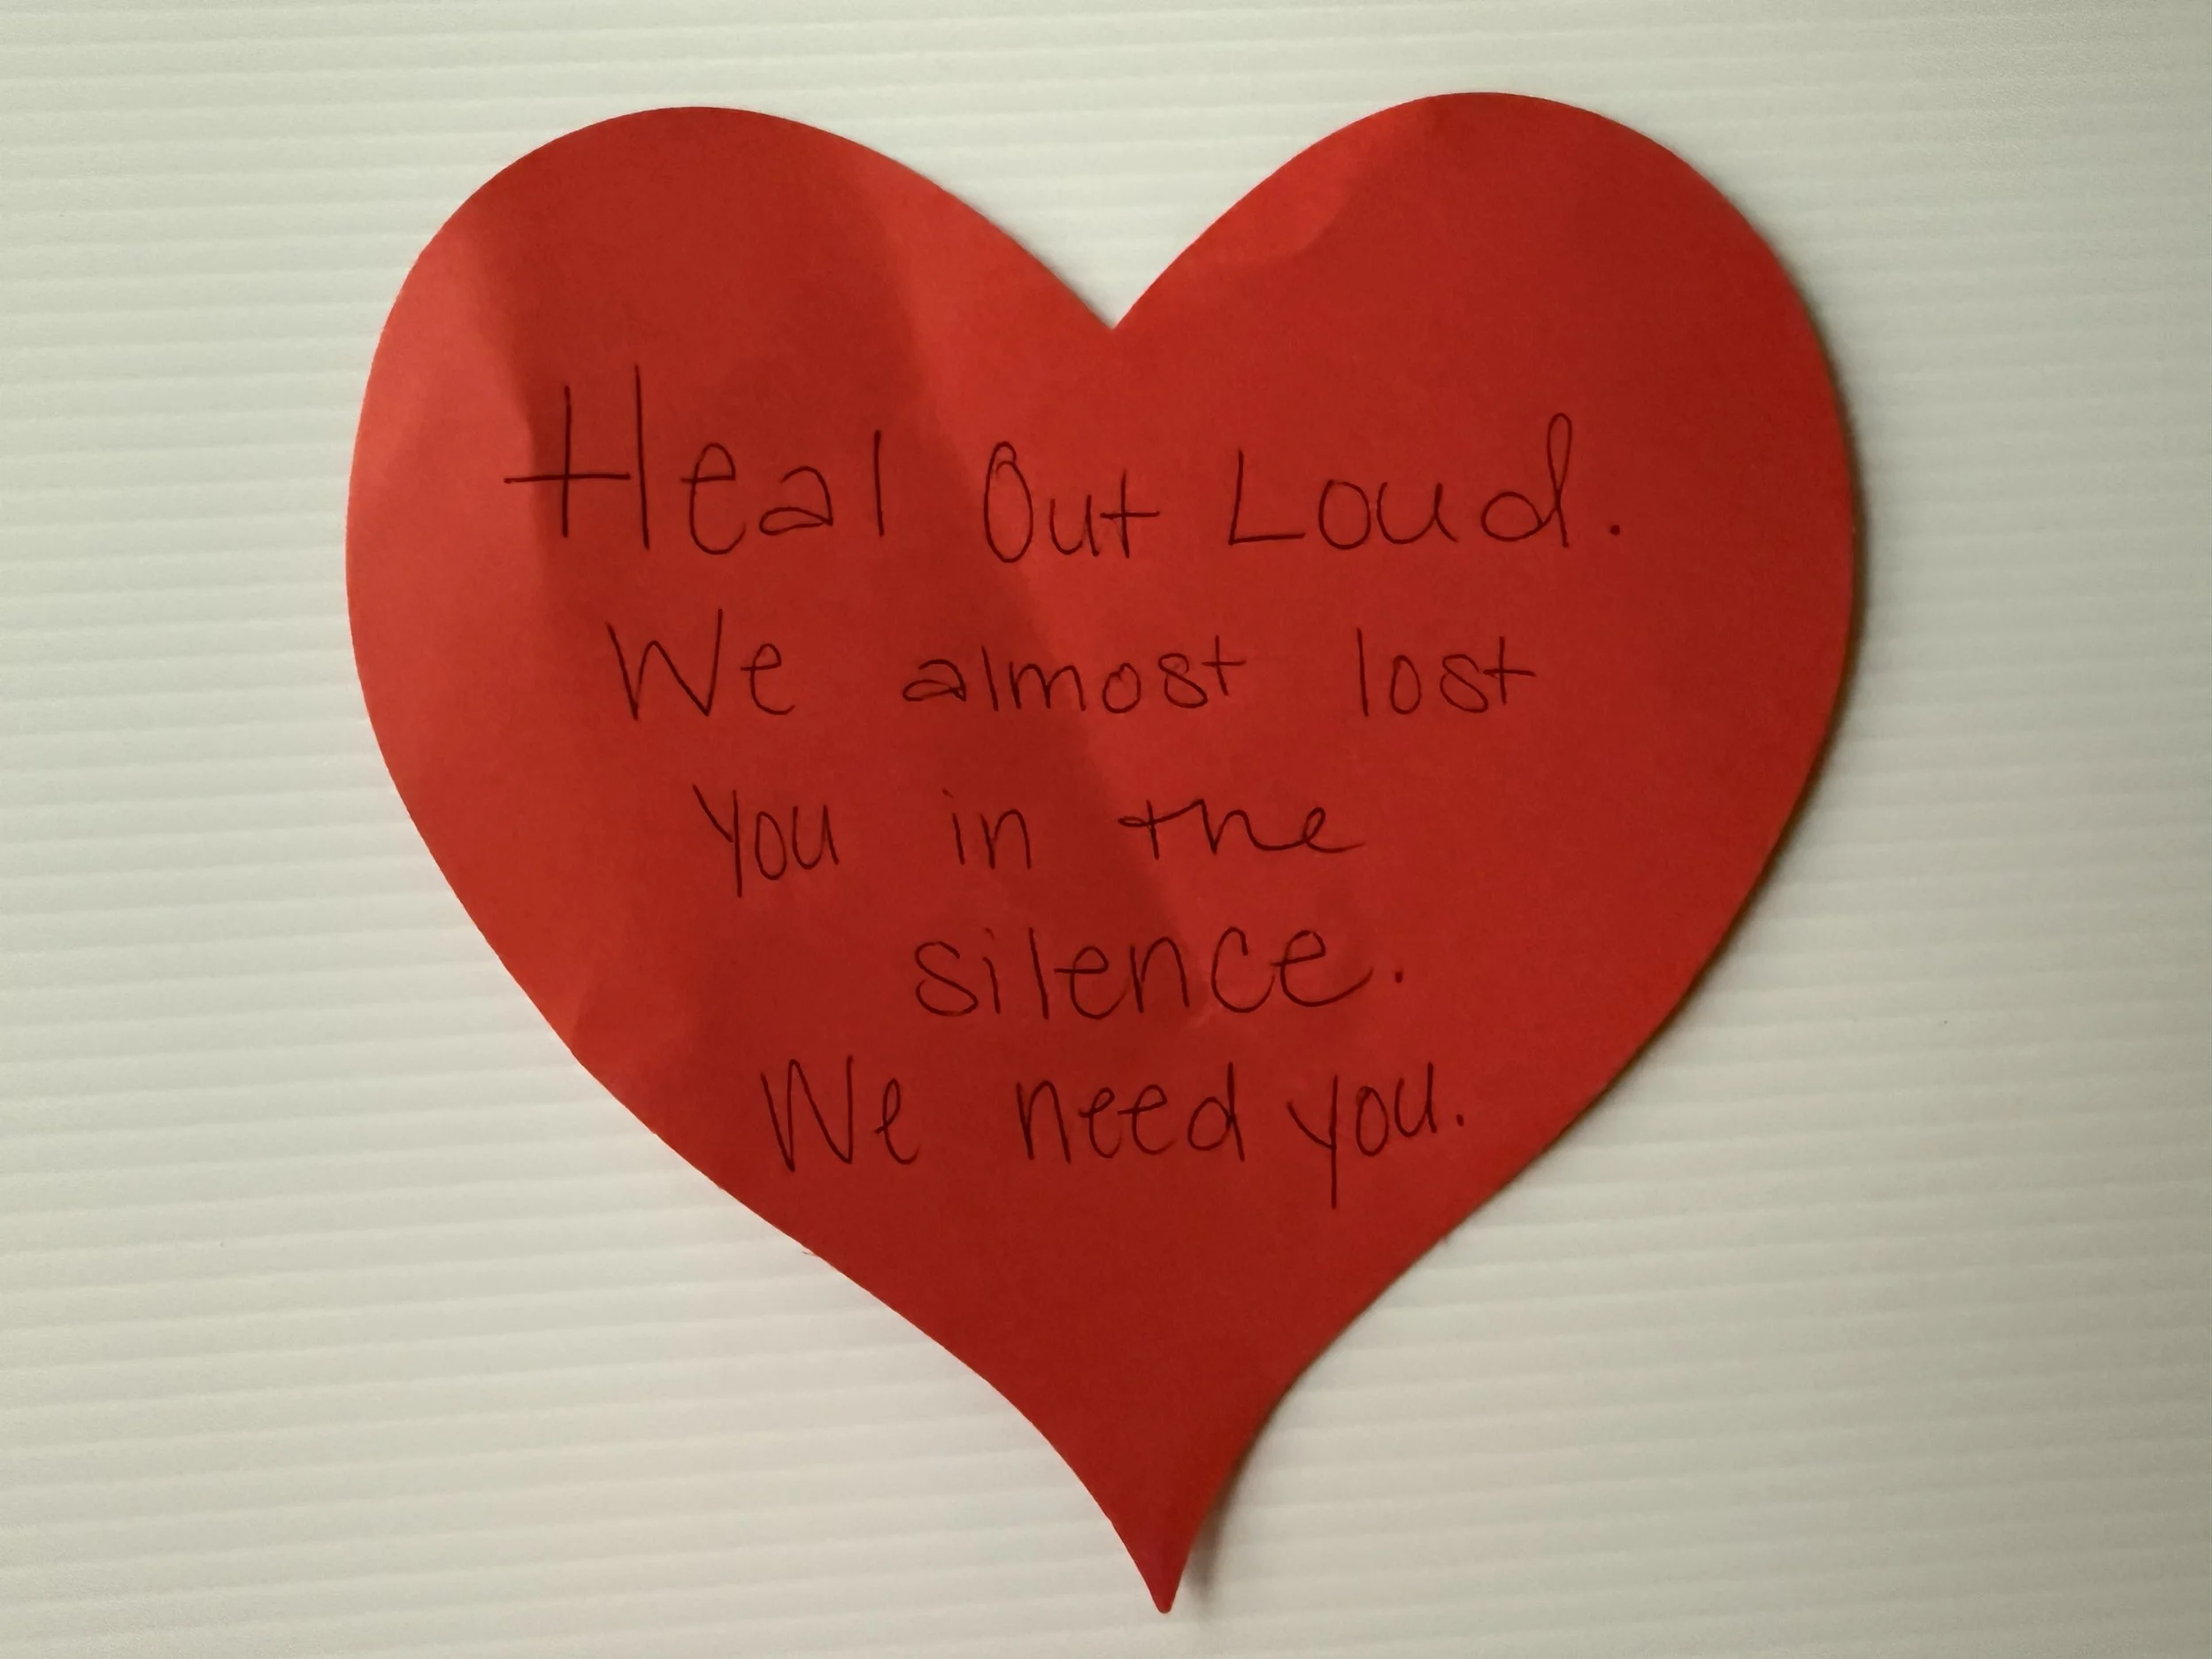 Heal Out Loud.
We almost lost
you in the
silence.
We need you.